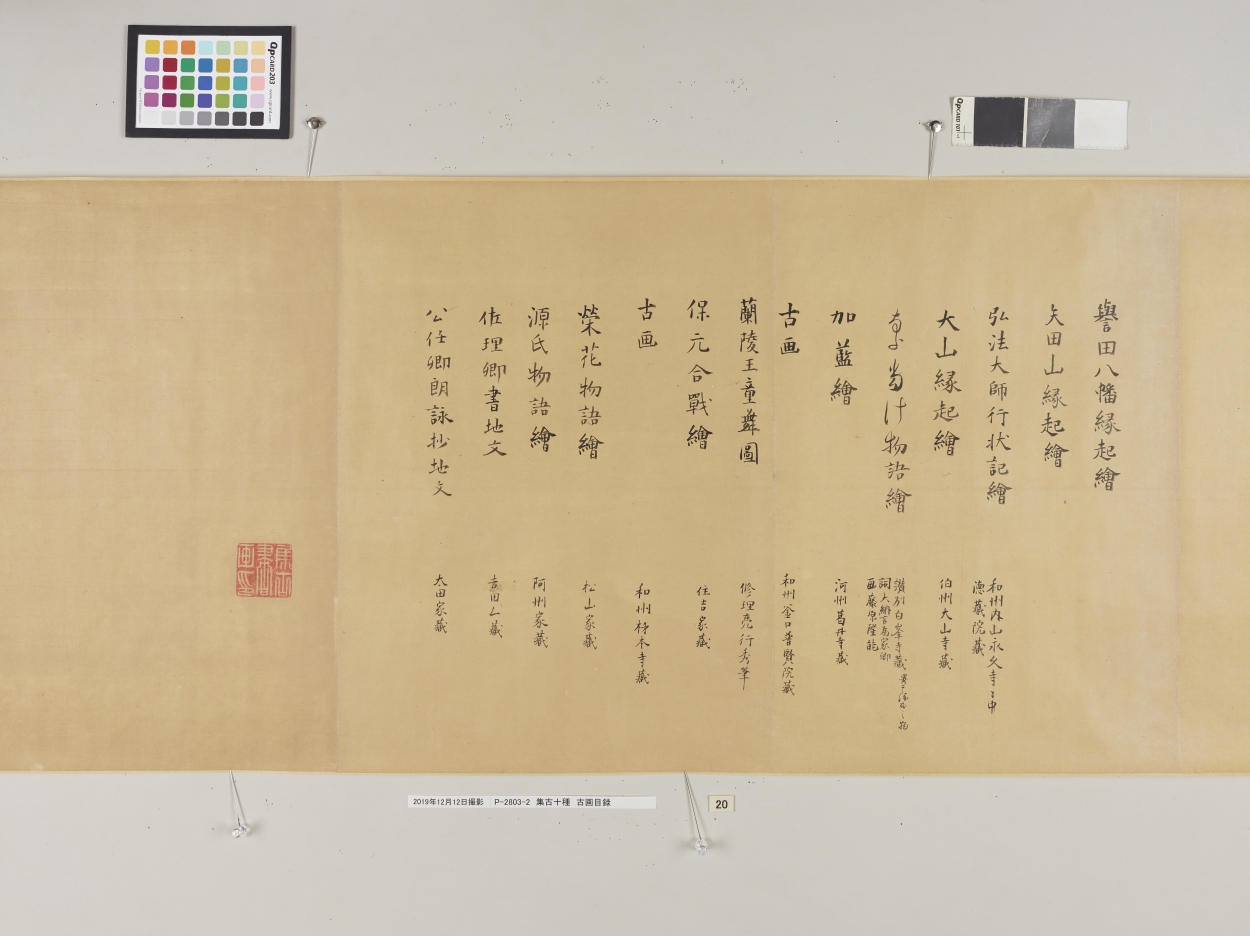 譽田八幡縁起繪
矢田山縁起繪
弘法大師行状記繪
和州内山永久寺
徳蔵院蔵
大山縁起繪
伯州大山寺蔵
物語繪
讃州白峯寺蔵
詞大納言為家卿
画藤原隆能
加藍繪
河州葛井寺蔵
古画
和州釜口普賢院蔵
蘭陵王童舞圖
修理亮行秀筆
保元合戰繪
住吉家蔵
古画
和州 本寺蔵
榮花物語繪
松山家蔵
源氏物語繪
阿州家蔵
佐理卿書地文
公任卿朗詠抄地文
太田家蔵
2019年12月12日撮影 P-2803-2 集古十種 古画目録
20
QpCARD 203
QpCARD 101